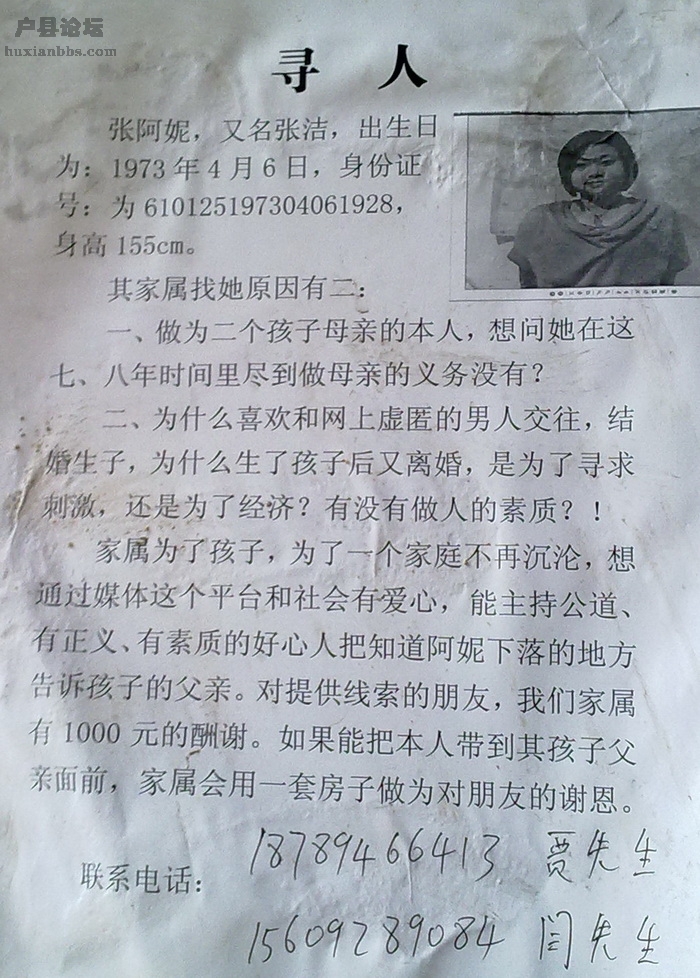 户县论坛
huxianbbs.com
寻 人
张阿妮，又名张洁，出生日
为：1973 年 4 月 6 日，身份证
号：为 610125197304061928，
身高 155cm。
其家属找她原因有二：
一、做为二个孩子母亲的本人，想问她在这
七、八年时间里尽到做母亲的义务没有？
二、为什么喜欢和网上虚匿的男人交往，结
婚生子，为什么生了孩子后又离婚，是为了寻求
刺激，还是为了经济？有没有做人的素质？！
家属为了孩子，为了一个家庭不再沉沦，想
通过媒体这个平台和社会有爱心，能主持公道、
有正义、有素质的好心人把知道阿妮下落的地方
告诉孩子的父亲。对提供线索的朋友，我们家属
有 1000 元的酬谢。如果能把本人带到其孩子父
亲面前，家属会用一套房子做为对朋友的谢恩。
联系电话：18789466413 贾先生
15609289084 闫先生